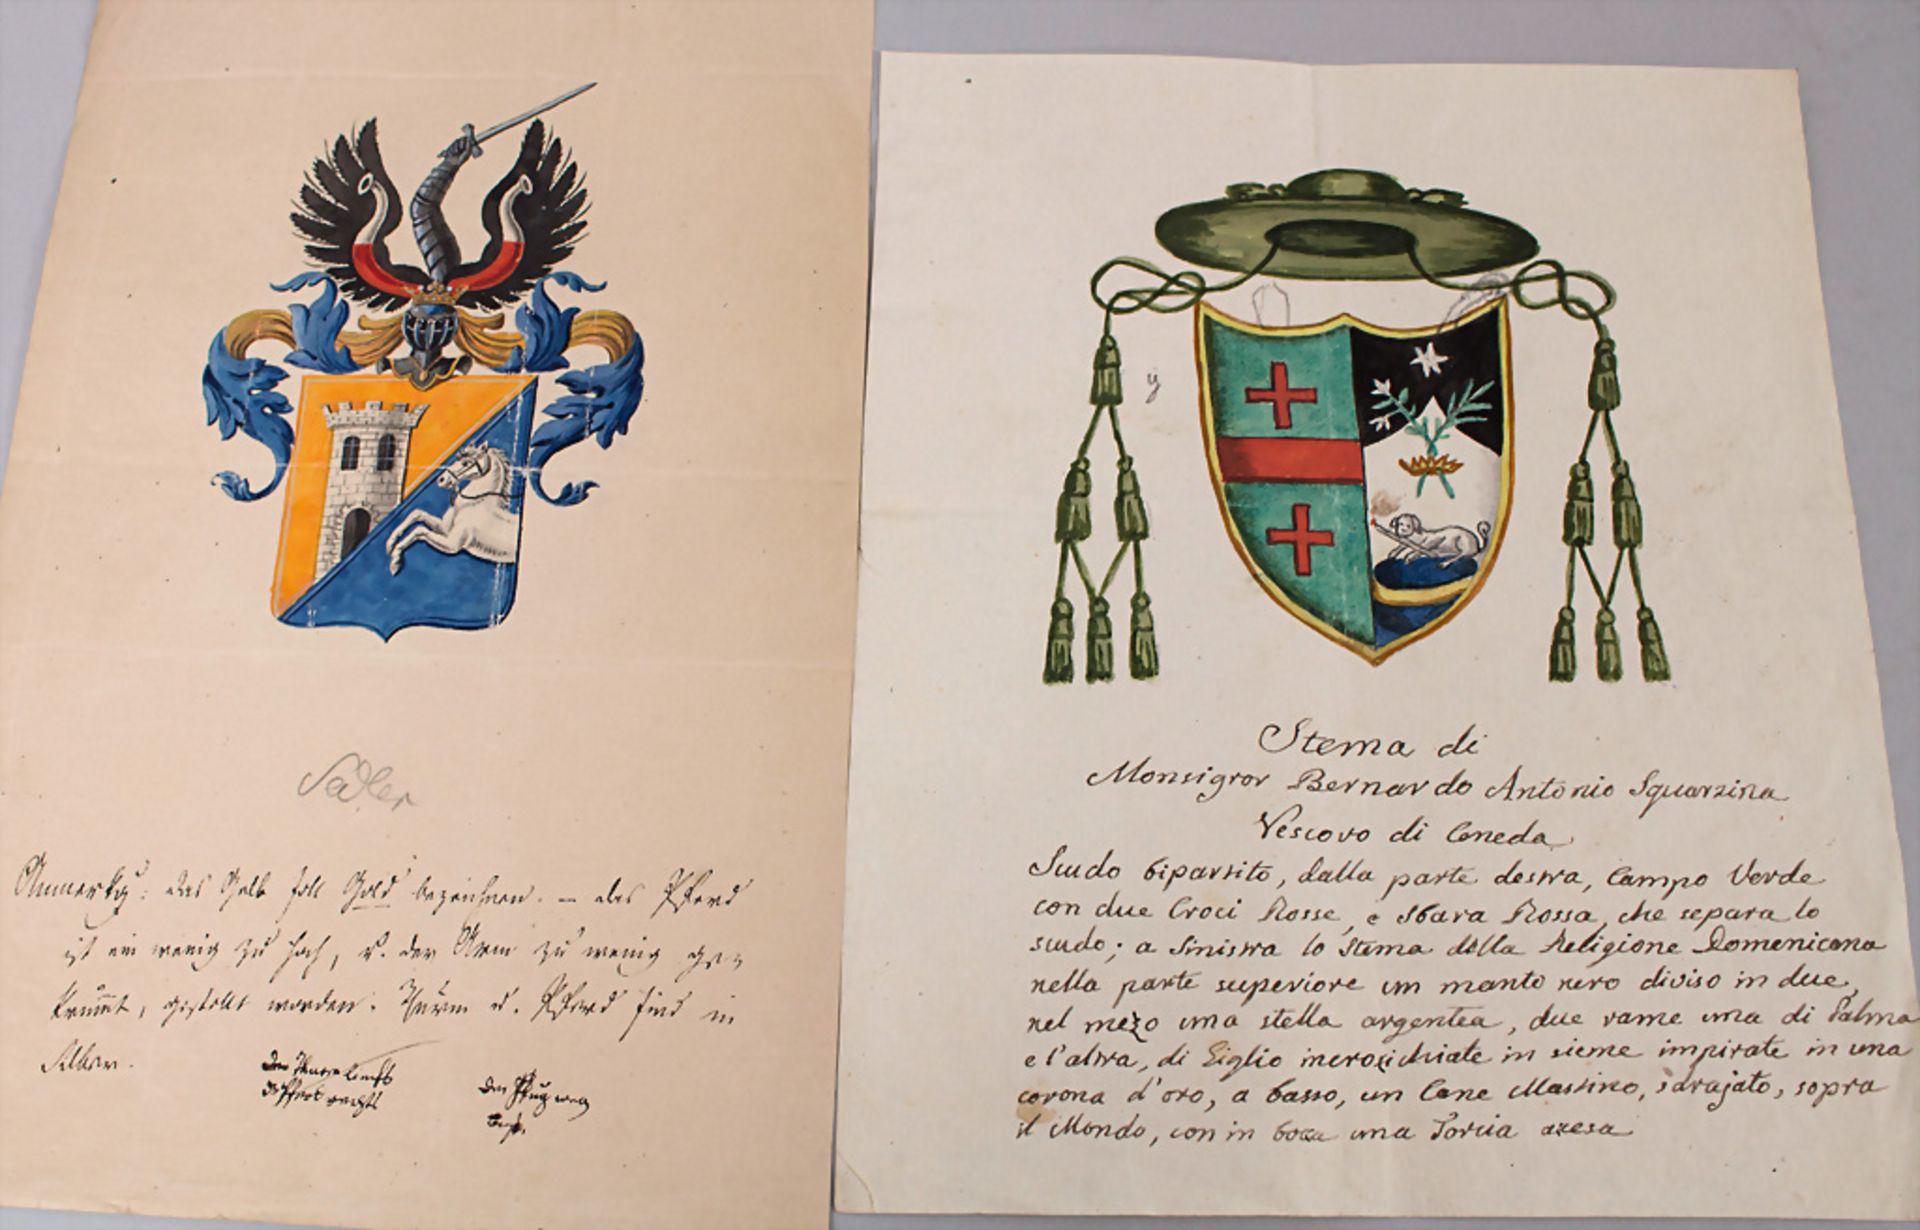 Sedler
Anmerkg: das Gelb soll Gold bezeichnen. – das Pferd
ist ein wenig zu hoch, u. der Arm zu wenig ge=
krümt, gestellt worden. Thurm u. Pferd sind in
Silber.
rechts
weg
y
Stema di
Monsigror Bernardo Antonio Squarzina
Vescovo di Ceneda
Scudo bipartito, dalla parte destra, Campo Verde
con due Croci Rosse, e Sbara Rossa, che separa lo
scudo; a Sinistra lo Stema della Religione Domenicana
nella parte superiore um manto nero diviso in due,
nel mezo uma stella argentea, due rame uma di Palma
e l'altra, di Giglio incrosichiate in sieme impirate in una
corona d'oro, a basso, un Cane Mastino, sdrajato, sopra
il Mondo, con in boca una Torcia acesa